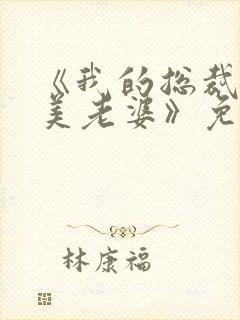 《我的总裁
美老婆》免
林康福